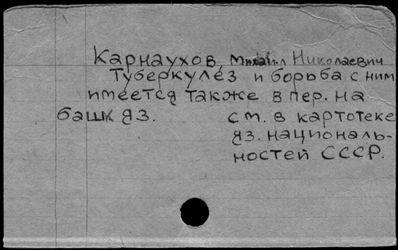 Карнаухов, Михаил Николаевич
Туберкулёз и борьба с ним
имеется также в пер. на
башк яз. см. в картотеке
яз. националь-
ностей СССР.